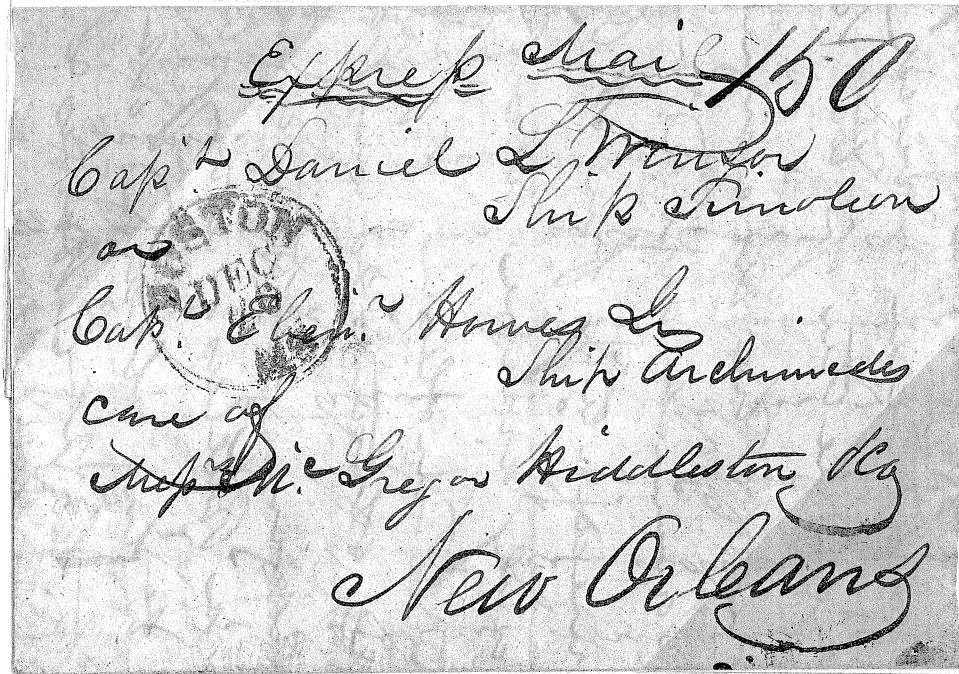 Express Mail 150
Capt. Daniel L Winsor
Ship Timoleon
or
BOSTON
DEC
Capt. Eben.r Howes Jr
Ship Archimedes
care of
Messrs Mc Gregor Hiddleston &Co
New Orleans